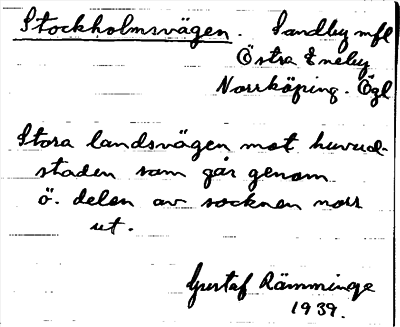 Stockholmsvägen. Sandby mfl
Östra Eneby
Norrköping. Ögl
Stora landsvägen mot huvud-
staden som går genom
ö. delen av socknen norr
ut.
Gustaf Rämminge
1939.